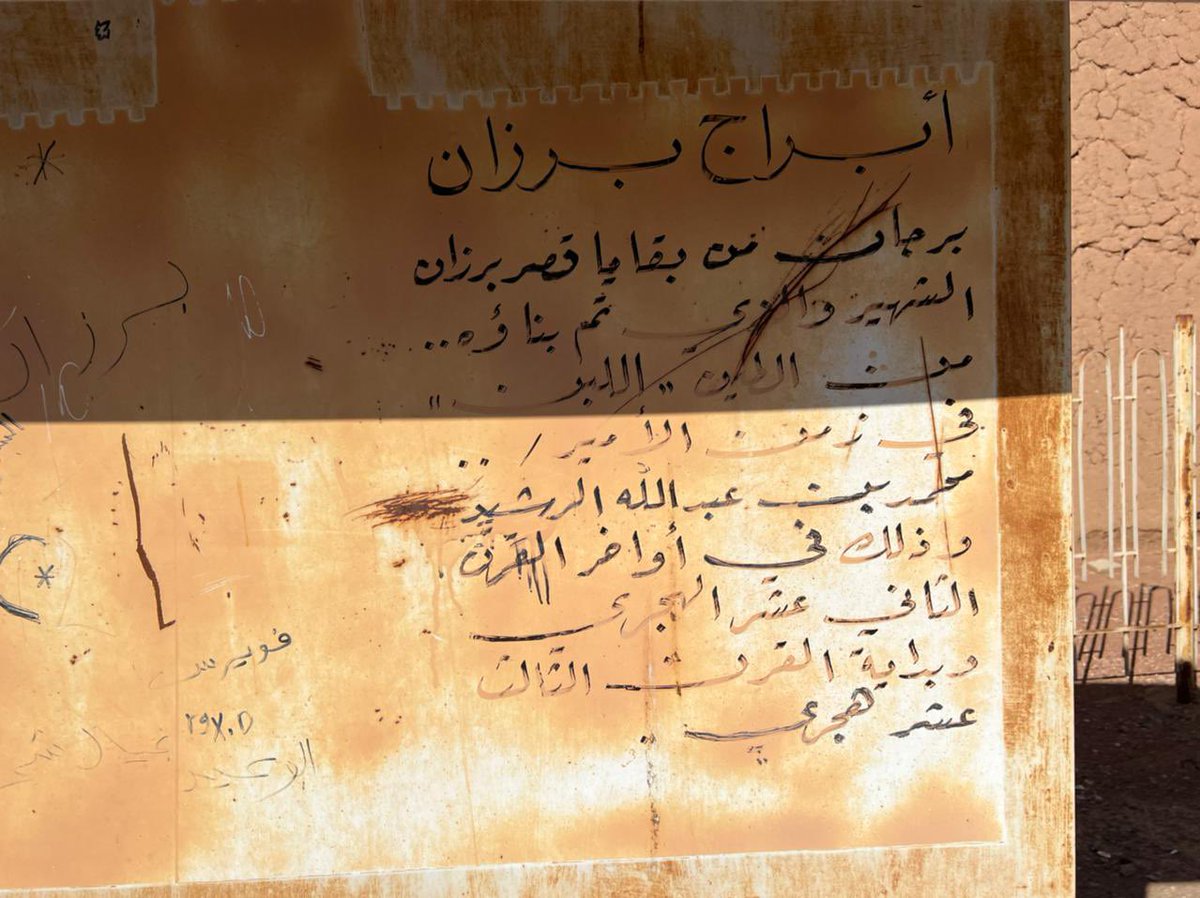 أبراج برزان
برجان من بقايا قصر برزان
الشهير والذي تم بناؤه..
من الطين "اللبن"
في زمن الأمير / ..
محمد بن عبدالله الرشيد
وذلك في أواخر القرن
الثاني عشر الهجري
وبداية القرن الثالث
عشر هجري
برزان